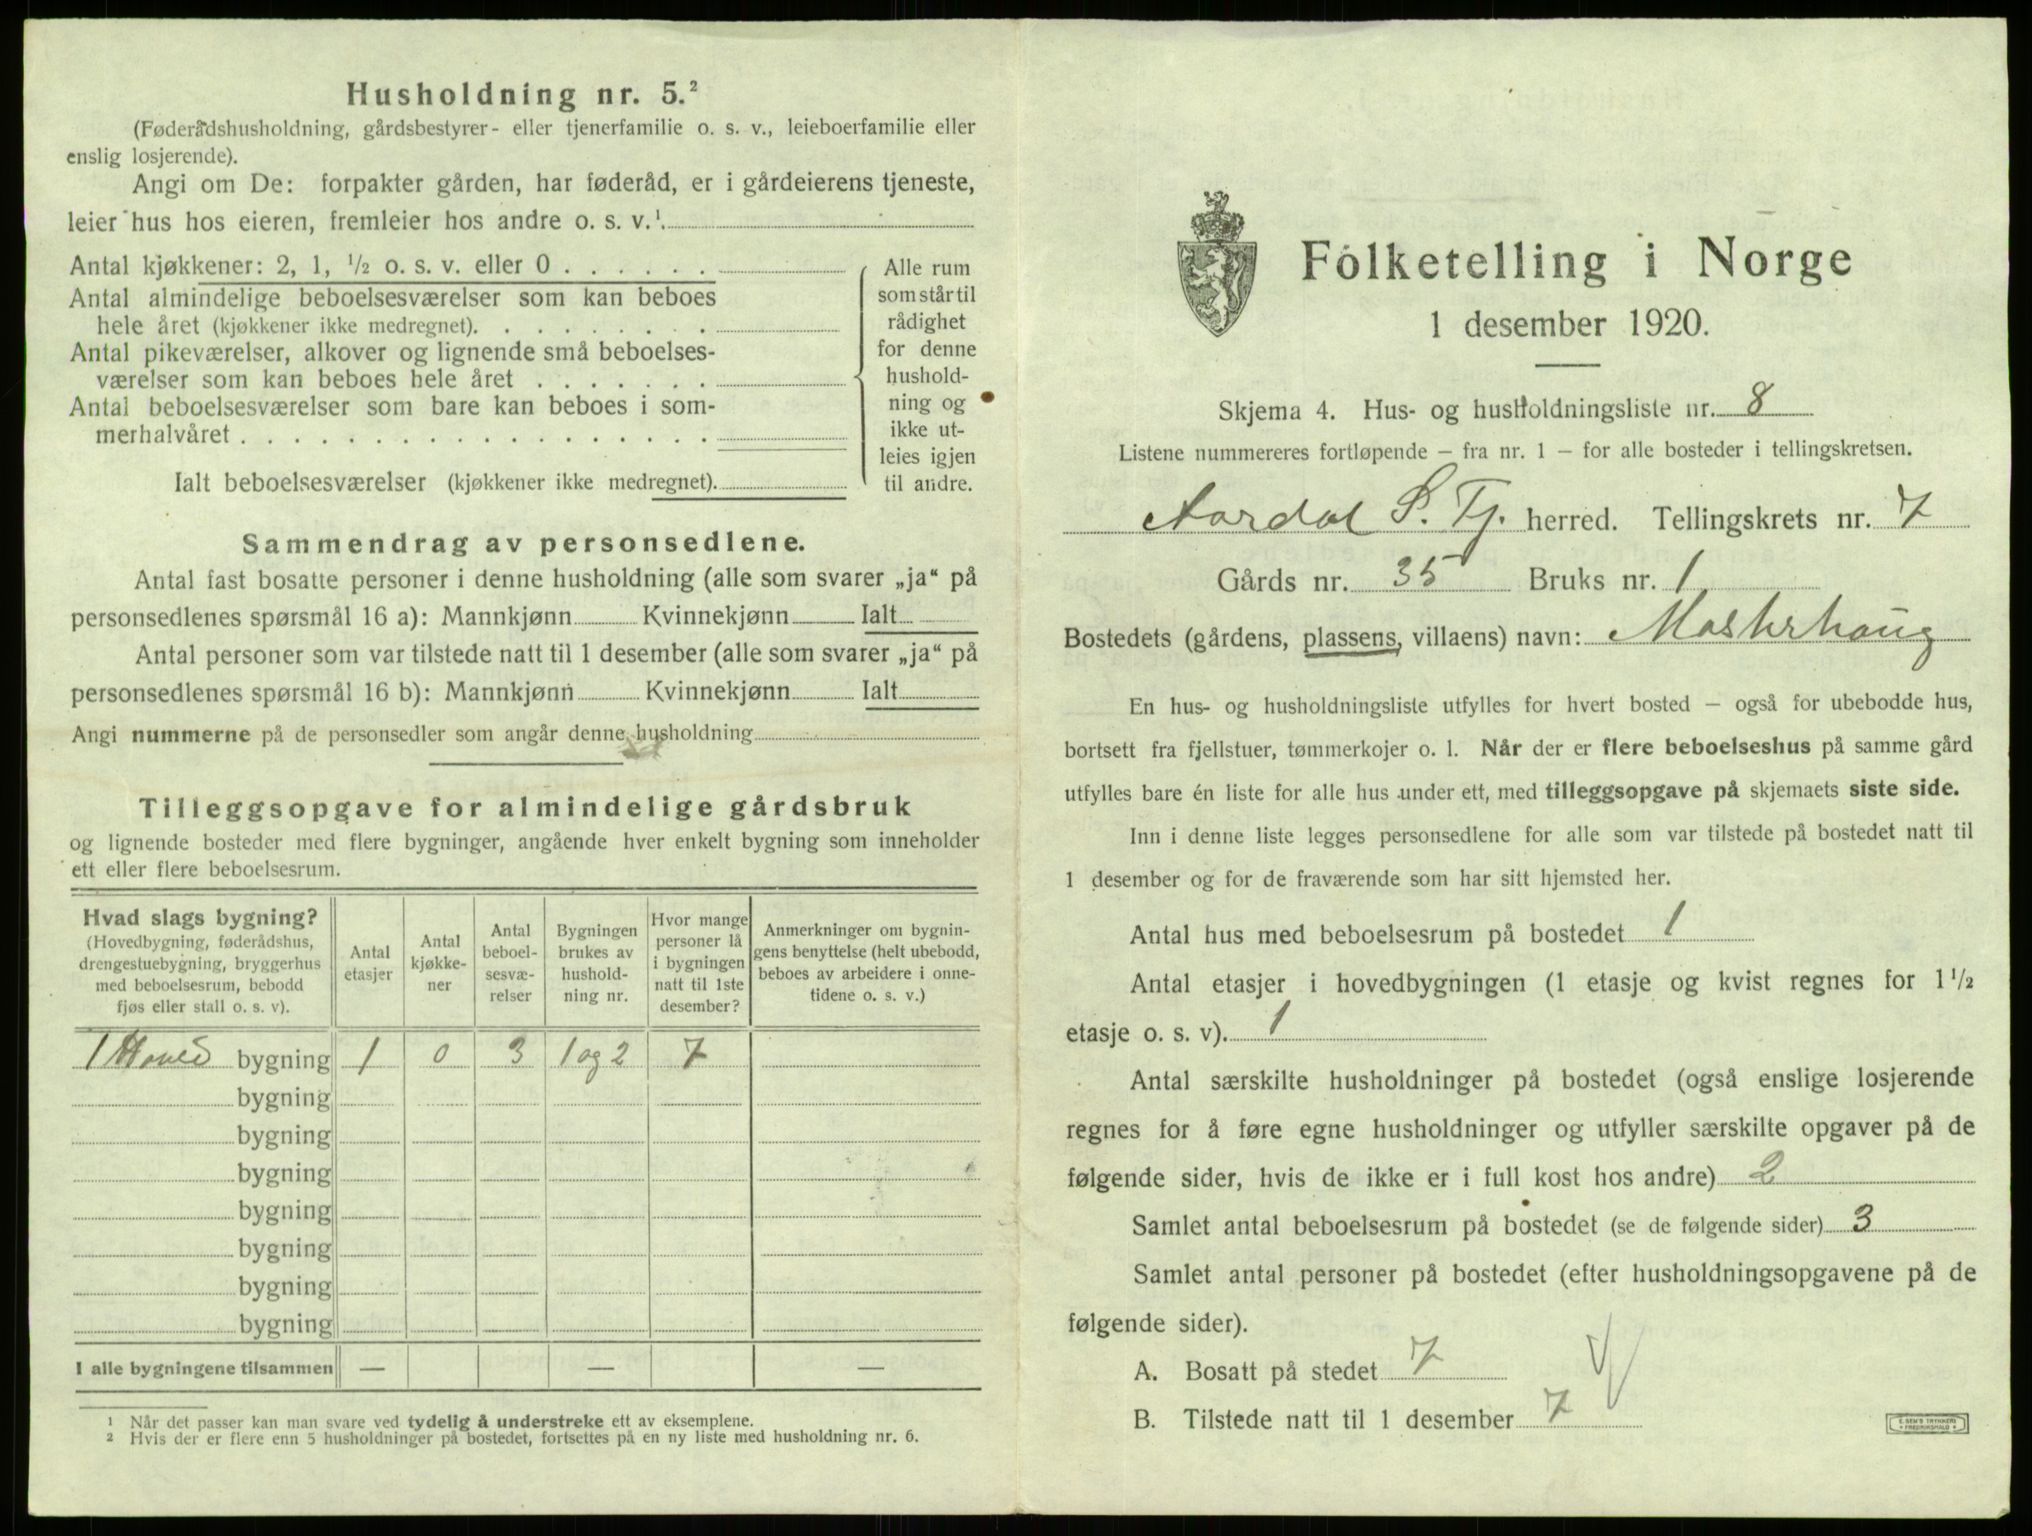 Husholdning nr. 5.²
(Føderådshusholdning, gårdsbestyrer- eller tjenerfamilie o. s. v., leieboerfamilie eller
enslig losjerende).
Angi om De: forpakter gården, har føderåd, er i gårdeierens tjeneste,
leier hus hos eieren, fremleier hos andre o. s. v.¹
Antal kjøkkener: 2, 1, ½ o. s. v. eller 0 . . . . . .
Antal almindelige beboelsesværelser som kan beboes
hele året (kjøkkener ikke medregnet). . . . . . . . .
Antal pikeværelser, alkover og lignende små beboelses-
værelser som kan beboes hele året . . . . . . .
Antal beboelsesværelser som bare kan beboes i som-
merhalvåret . . . . . . . . . . . . . . . . . .
Ialt beboelsesværelser (kjøkkener ikke medregnet).
Alle rum
som står til
rådighet
for denne
hushold-
ning og
ikke ut-
leies igjen
til andre.
Sammendrag av personsedlene.
Antal fast bosatte personer i denne husholdning (alle som svarer „ja“ på
personsedlenes spørsmål 16 a): Mannkjønn Kvinnekjønn Ialt
Antal personer som var tilstede natt til 1 desember (alle som svarer „ja“ på
personsedlenes spørsmål 16 b): Mannkjønn Kvinnekjønn Ialt
Angi nummerne på de personsedler som angår denne husholdning
Tilleggsopgave for almindelige gårdsbruk
og lignende bosteder med flere bygninger, angående hver enkelt bygning som inneholder
ett eller flere beboelsesrum.
Hvad slags bygning?
(Hovedbygning, føderådshus,
drengestuebygning, bryggerhus
med beboelsesrum, bebodd
fjøs eller stall o. s. v).
Antal
etasjer
Antal
kjøkke-
ner
Antal
beboel-
sesvæ-
relser
Bygningen
brukes av
hushold-
ning nr.
Hvor mange
personer lå
i bygningen
natt til 1ste
desember?
Anmerkninger om bygnin-
gens benyttelse (helt ubebodd,
beboes av arbeidere i onne-
tidene o. s. v.)
1 Hoved bygning 1 0 3 1 og 2 7
bygning
bygning
bygning
bygning
bygning
bygning
bygning
I alle bygningene tilsammen — — —
¹ Når det passer kan man svare ved tydelig å understreke ett av eksemplene.
² Hvis der er flere enn 5 husholdninger på bostedet, fortsettes på en ny liste med husholdning nr. 6.
Folketelling i Norge
1 desember 1920.
Skjema 4. Hus- og husholdningsliste nr. 8
Listene nummereres fortløpende — fra nr. 1 — for alle bosteder i tellingskretsen.
Aardal S. Fj. herred. Tellingskrets nr. 7
Gårds nr. 35 Bruks nr. 1
Bostedets (gårdens, plassens, villaens) navn:
En hus- og husholdningsliste utfylles for hvert bosted — også for ubebodde hus,
bortsett fra fjellstuer, tømmerkojer o. l. Når der er flere beboelseshus på samme gård
utfylles bare én liste for alle hus under ett, med tilleggsopgave på skjemaets siste side.
Inn i denne liste legges personsedlene for alle som var tilstede på bostedet natt til
1 desember og for de fraværende som har sitt hjemsted her.
Antal hus med beboelsesrum på bostedet 1
Antal etasjer i hovedbygningen (1 etasje og kvist regnes for 1½
etasje o. s. v). 1
Antal særskilte husholdninger på bostedet (også enslige losjerende
regnes for å føre egne husholdninger og utfyller særskilte opgaver på de
følgende sider, hvis de ikke er i full kost hos andre) 2
Samlet antal beboelsesrum på bostedet (se de følgende sider) 3
Samlet antal personer på bostedet (efter husholdningsopgavene på de
følgende sider).
A. Bosatt på stedet 7
B. Tilstede natt til 1 desember 7